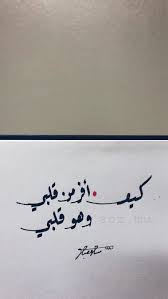 كيف أفر من قلبي
وهو قلبي